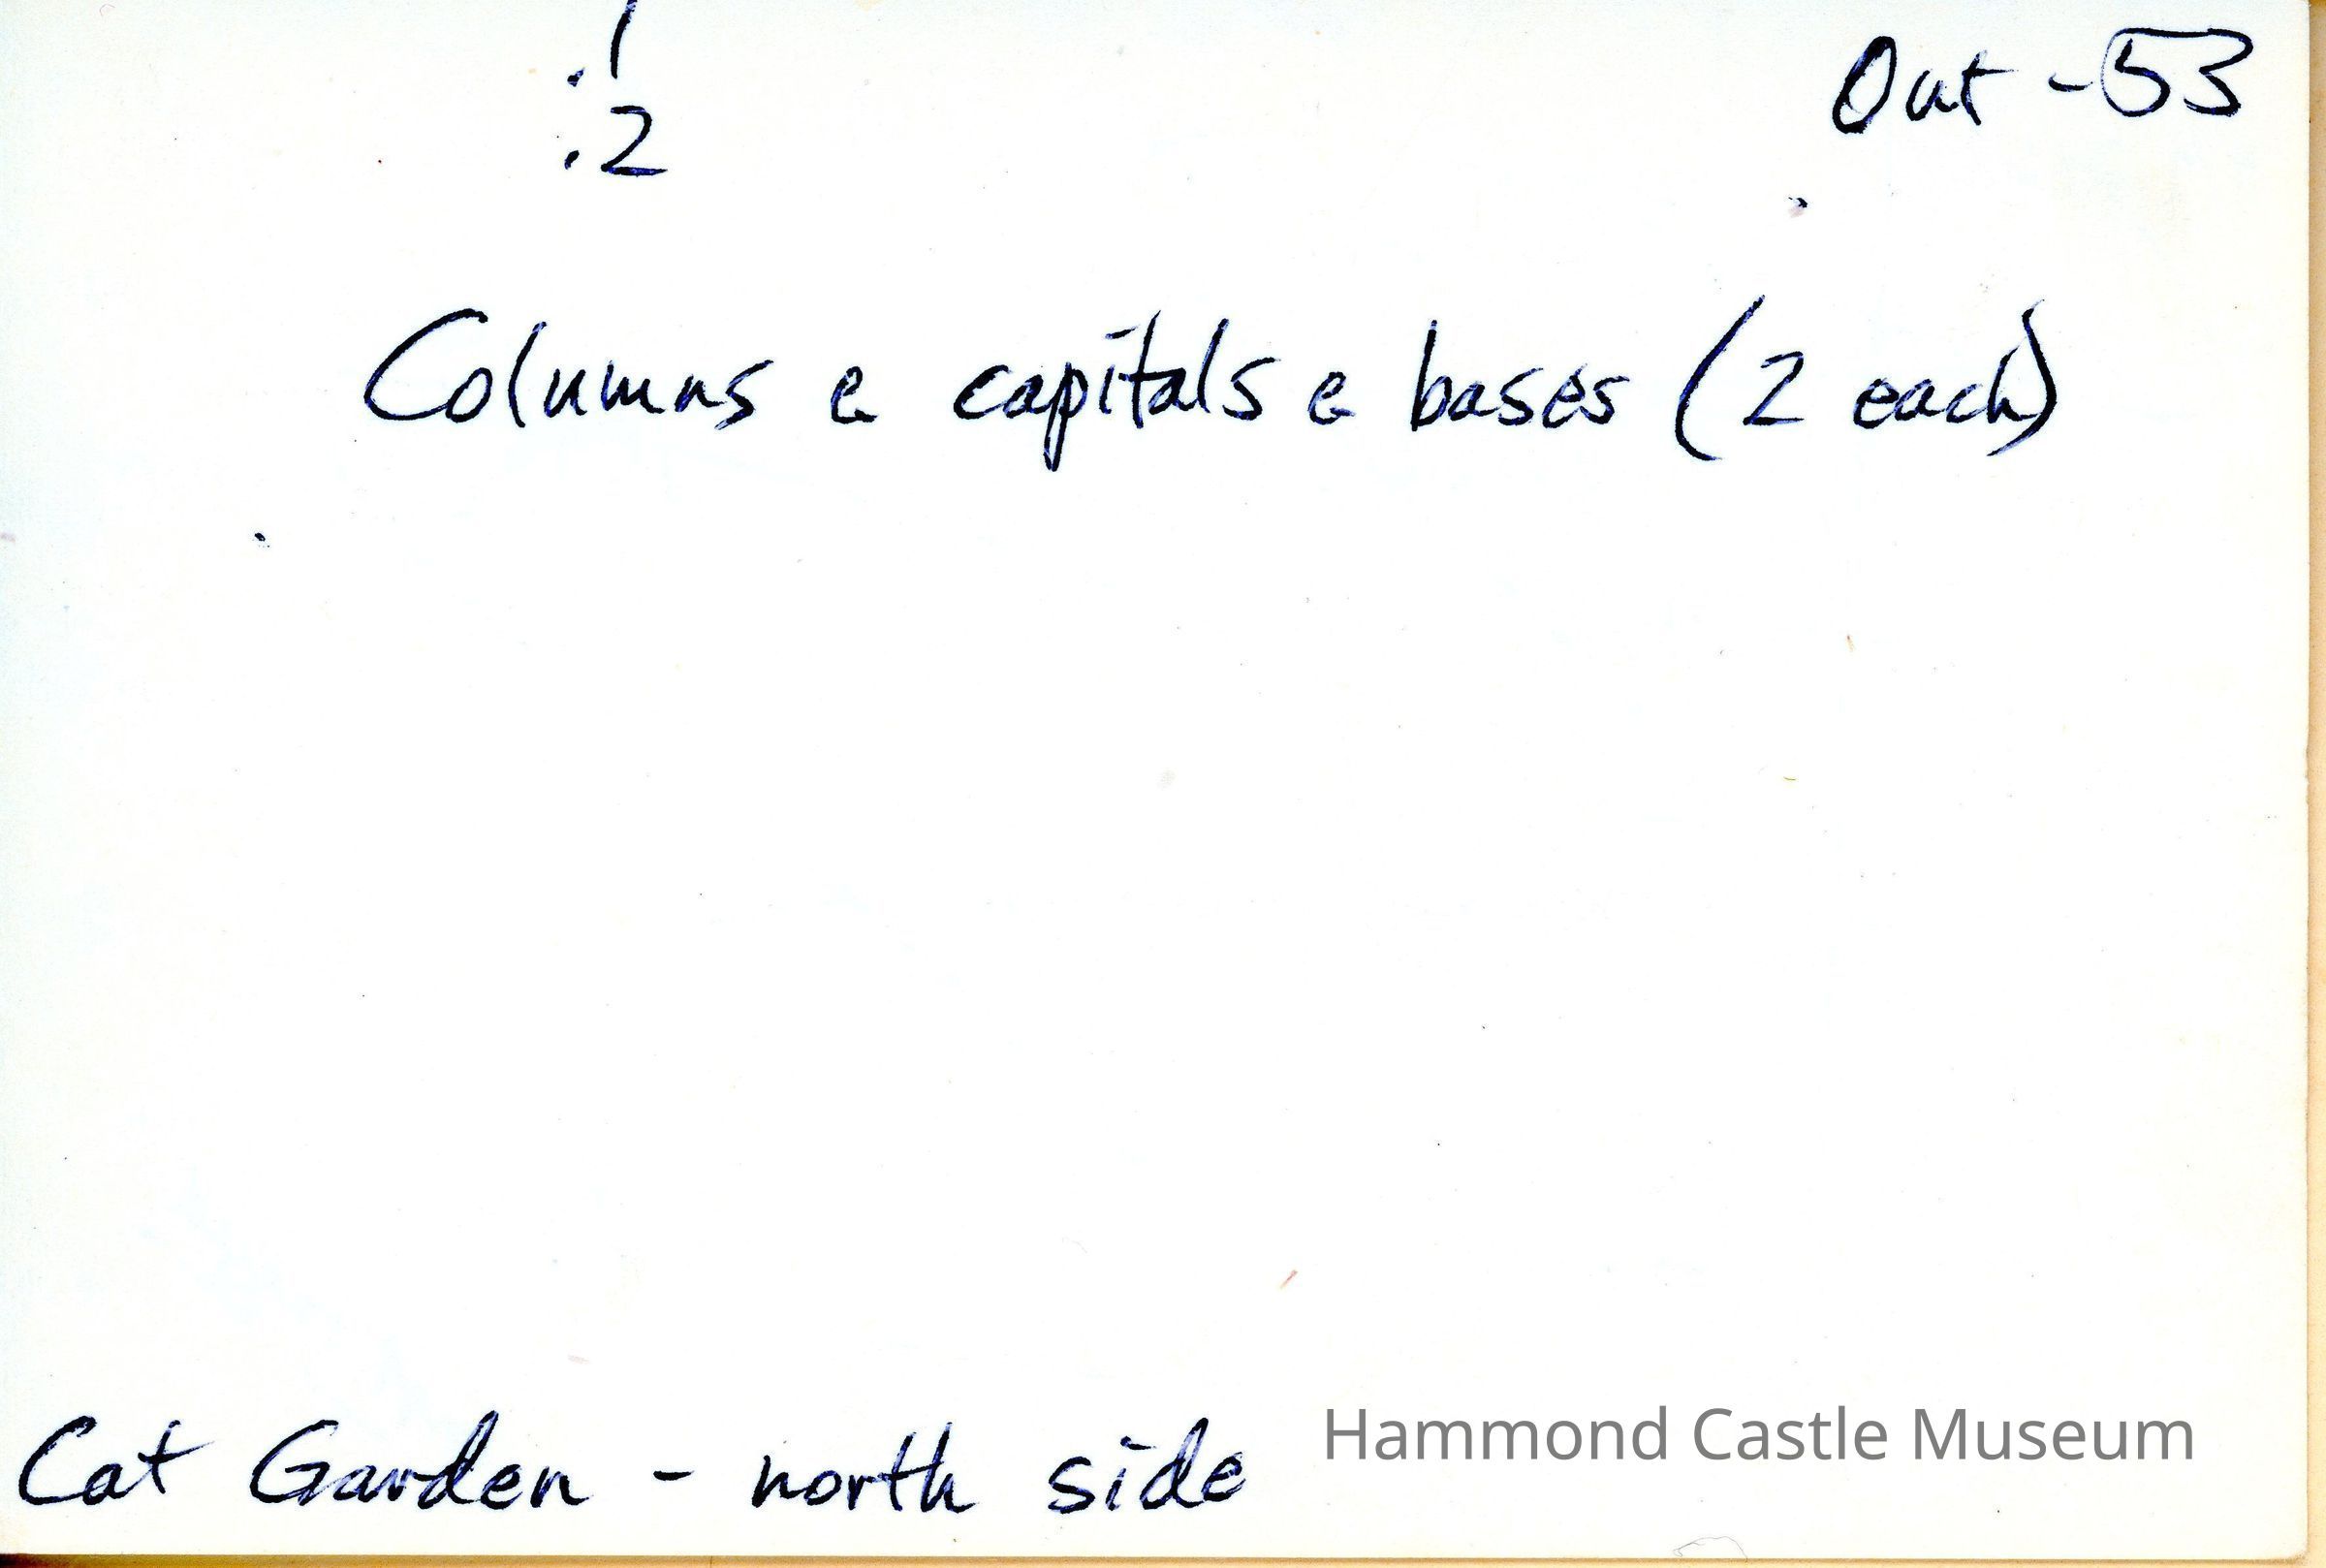 .1
.2
Out - 53
Columns & capitals & bases (2 each)
Cat Garden - north side
Hammond Castle Museum